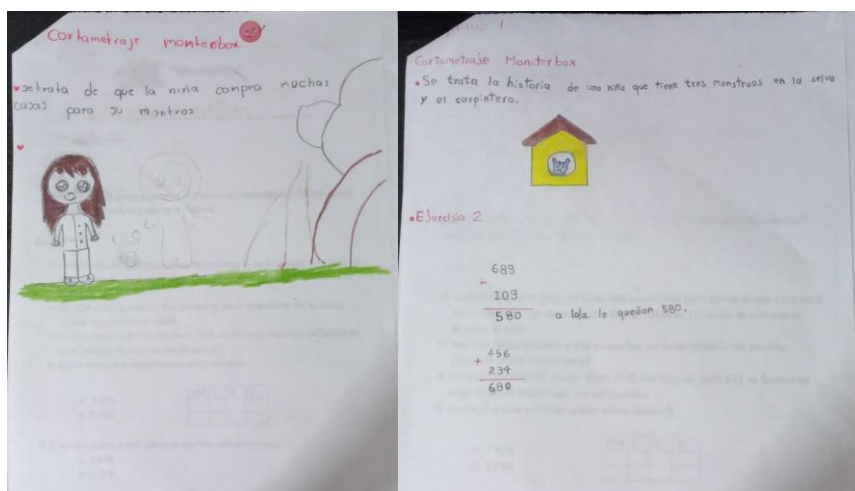 Cortametraje monterbox
setrata de que la niña compra muchas
casas para su montros
1
Cortometraje Monsterbox
• Se trata la historia de una niña que tiene tres monstruos en la selva
y el carpintero.
2
689
-
109
580 a lala le quedan 580.
+ 456
234
680